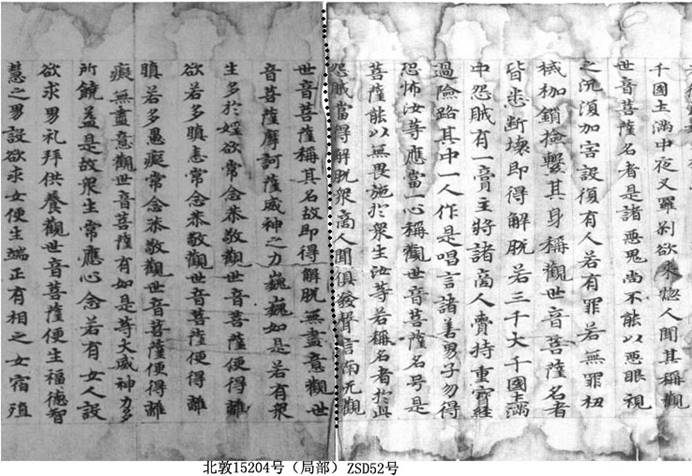 千國土滿中夜叉羅剎欲來惱人聞其稱觀
世音菩薩名者是諸惡鬼尚不能以惡眼視
之況復加害設復有人若有罪若無罪杻
械枷鎖撿繫其身稱觀世音菩薩名者
皆悉斷壞即得解脫若三千大千國土滿
中怨賊有一商主將諸商人賫持重寶經
過險路其中一人作是唱言諸善男子勿得
恐怖汝等應當一心稱觀世音菩薩名号是
菩薩能以無畏施於衆生汝等若稱名者於此
怨賊當得解脫衆商人聞俱發聲言南无觀
世音菩薩稱其名故即得解脫無盡意觀世
音菩薩摩訶薩威神之力巍巍如是若有衆
生多於婬欲常念恭敬觀世音菩薩便得離
欲若多瞋恚常念恭敬觀世音菩薩便得離
瞋若多愚癡常念恭敬觀世音菩薩便得離
癡無盡意觀世音菩薩有如是等大威神力多
所饒益是故衆生常應心念若有女人設
欲求男礼拜供養觀世音菩薩便生福德智
慧之男設欲求女便生端正有相之女宿殖
北敦15204号（局部）ZSD52号